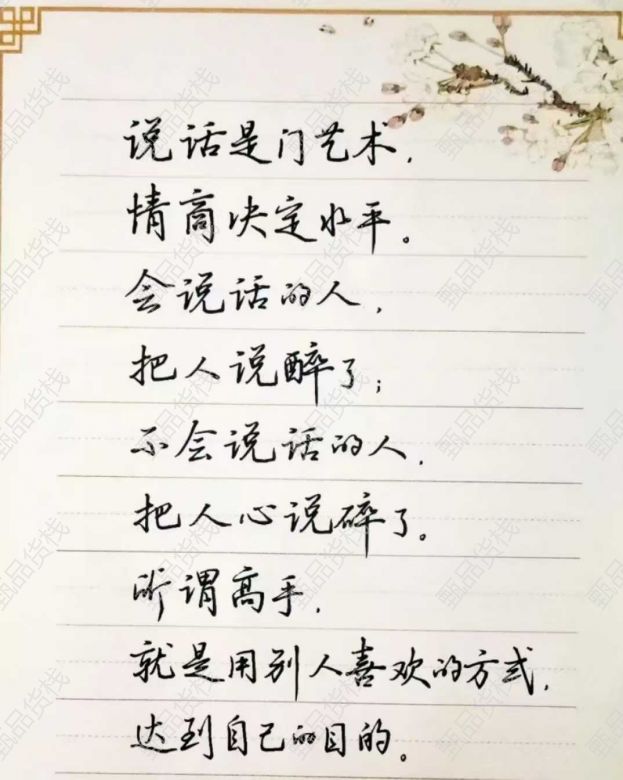 说话是门艺术，
情商决定水平。
会说话的人，
把人说醉了；
不会说话的人，
把人心说碎了。
所谓高手，
就是用别人喜欢的方式，
达到自己的目的。
甄品货栈